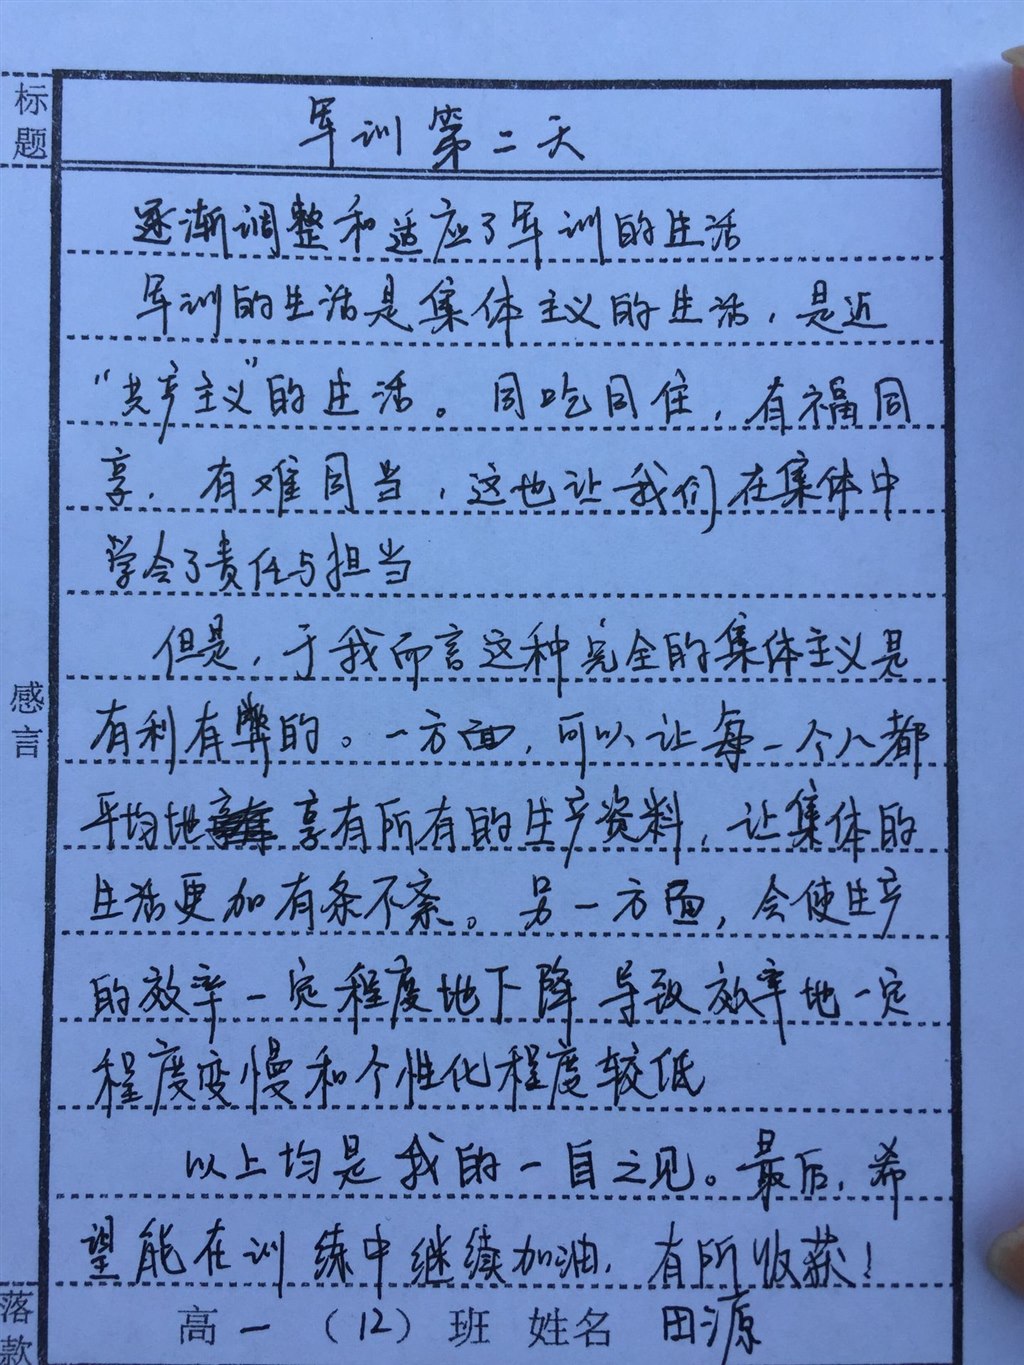 标题
军训第二天
逐渐调整和适应了军训的生活
军训的生活是集体主义的生活，是近
“共产主义”的生活。同吃同住，有福同
享，有难同当，这也让我们在集体中
学会了责任与担当
但是，于我而言这种完全的集体主义是
有利有弊的。一方面，可以让每一个人都
平均地享有所有的生产资料，让集体的
生活更加有条不紊。另一方面，会使生产
的效率一定程度地下降 导致效率地一定
程度变慢和个性化程度较低
以上均是我的一自之见。最后，希
望能在训练中继续加油，有所收获！
感言
落款
高一（12）班 姓名 田源